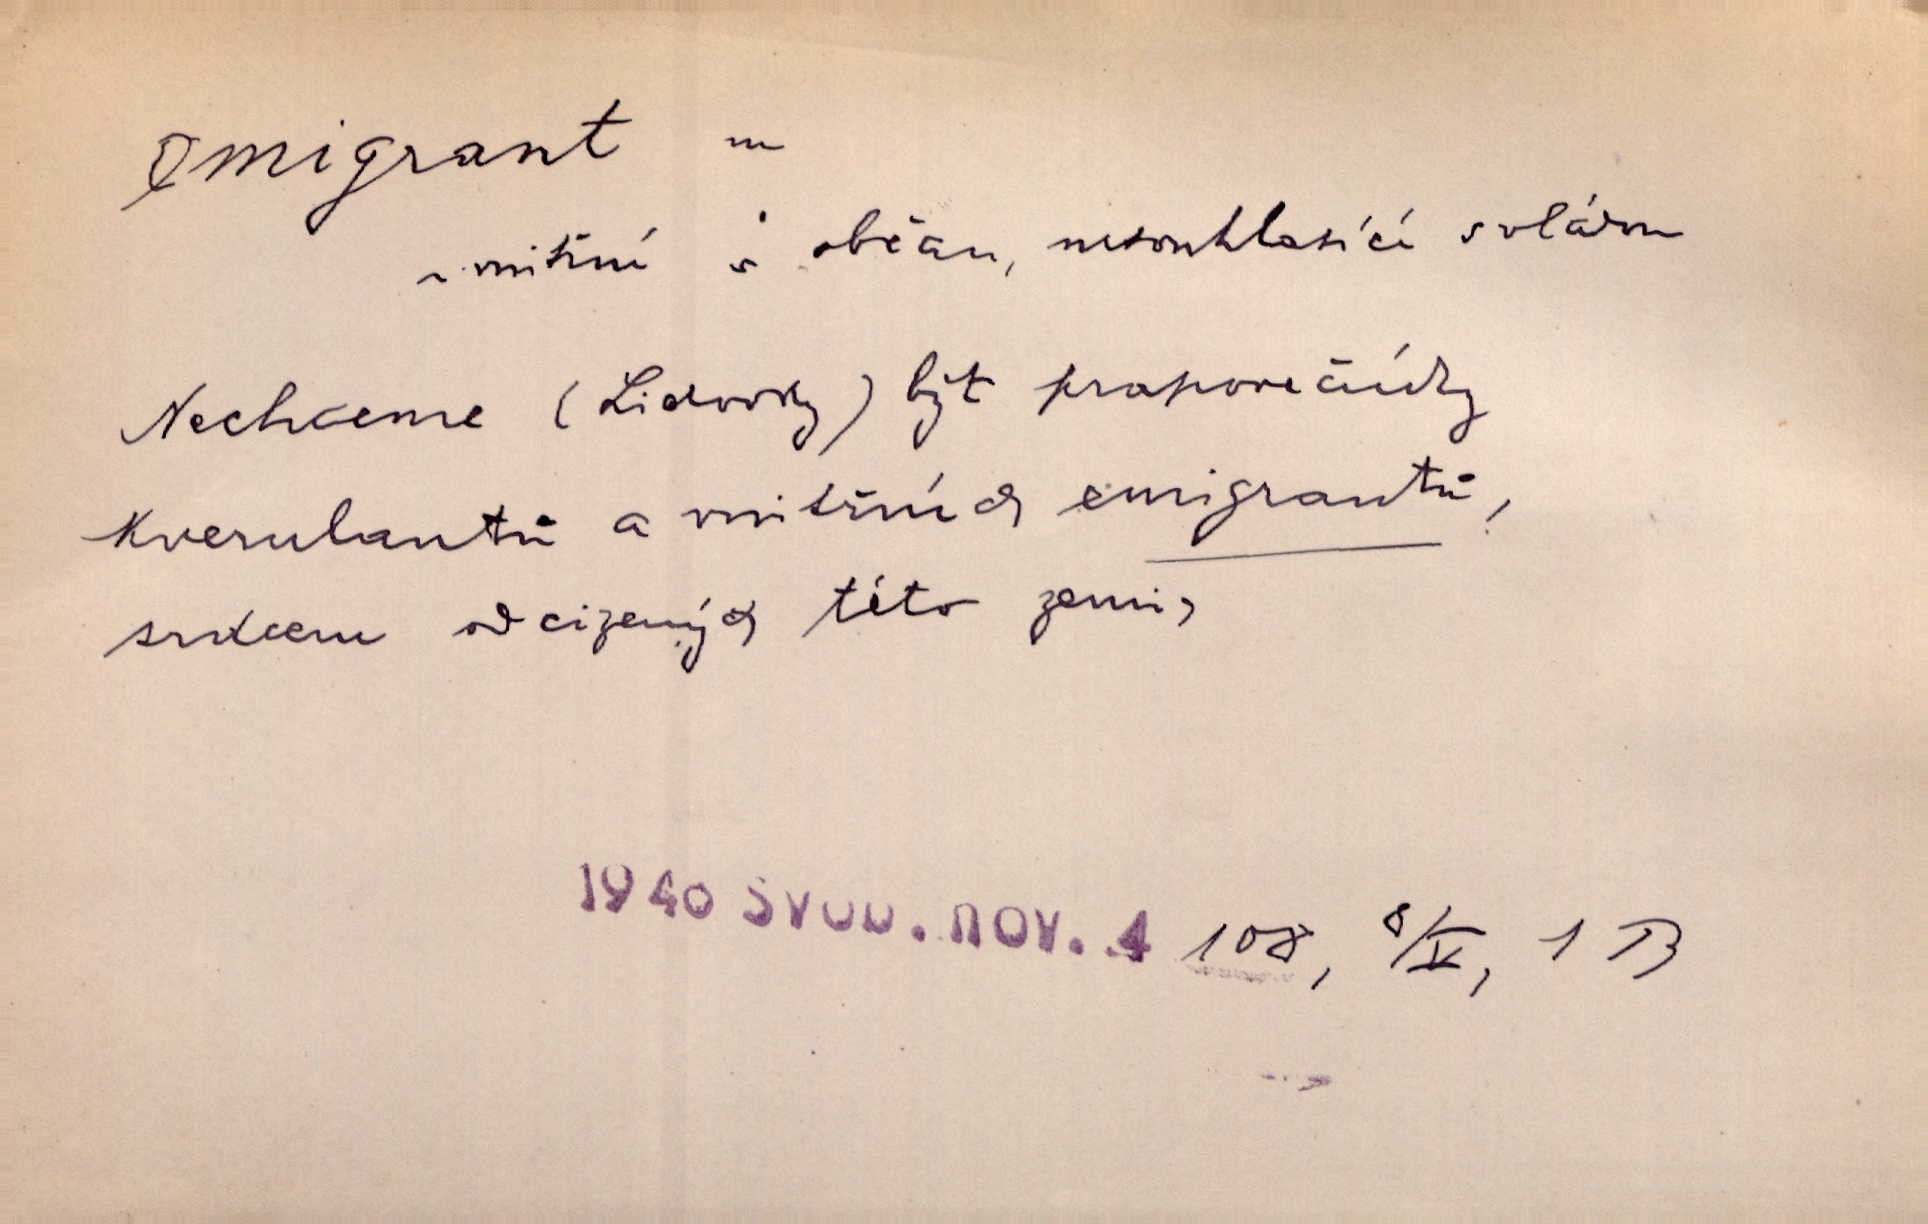 emigrant m
vnitřní občan, nesouhlasící s vládou
Nechceme (Lidovky) být praporečníky
kverulantů a vnitřních emigrantů,
srdcem odcizených této zemi,
1940 SVOB. NOV. 4 108, 8/V, 1 B